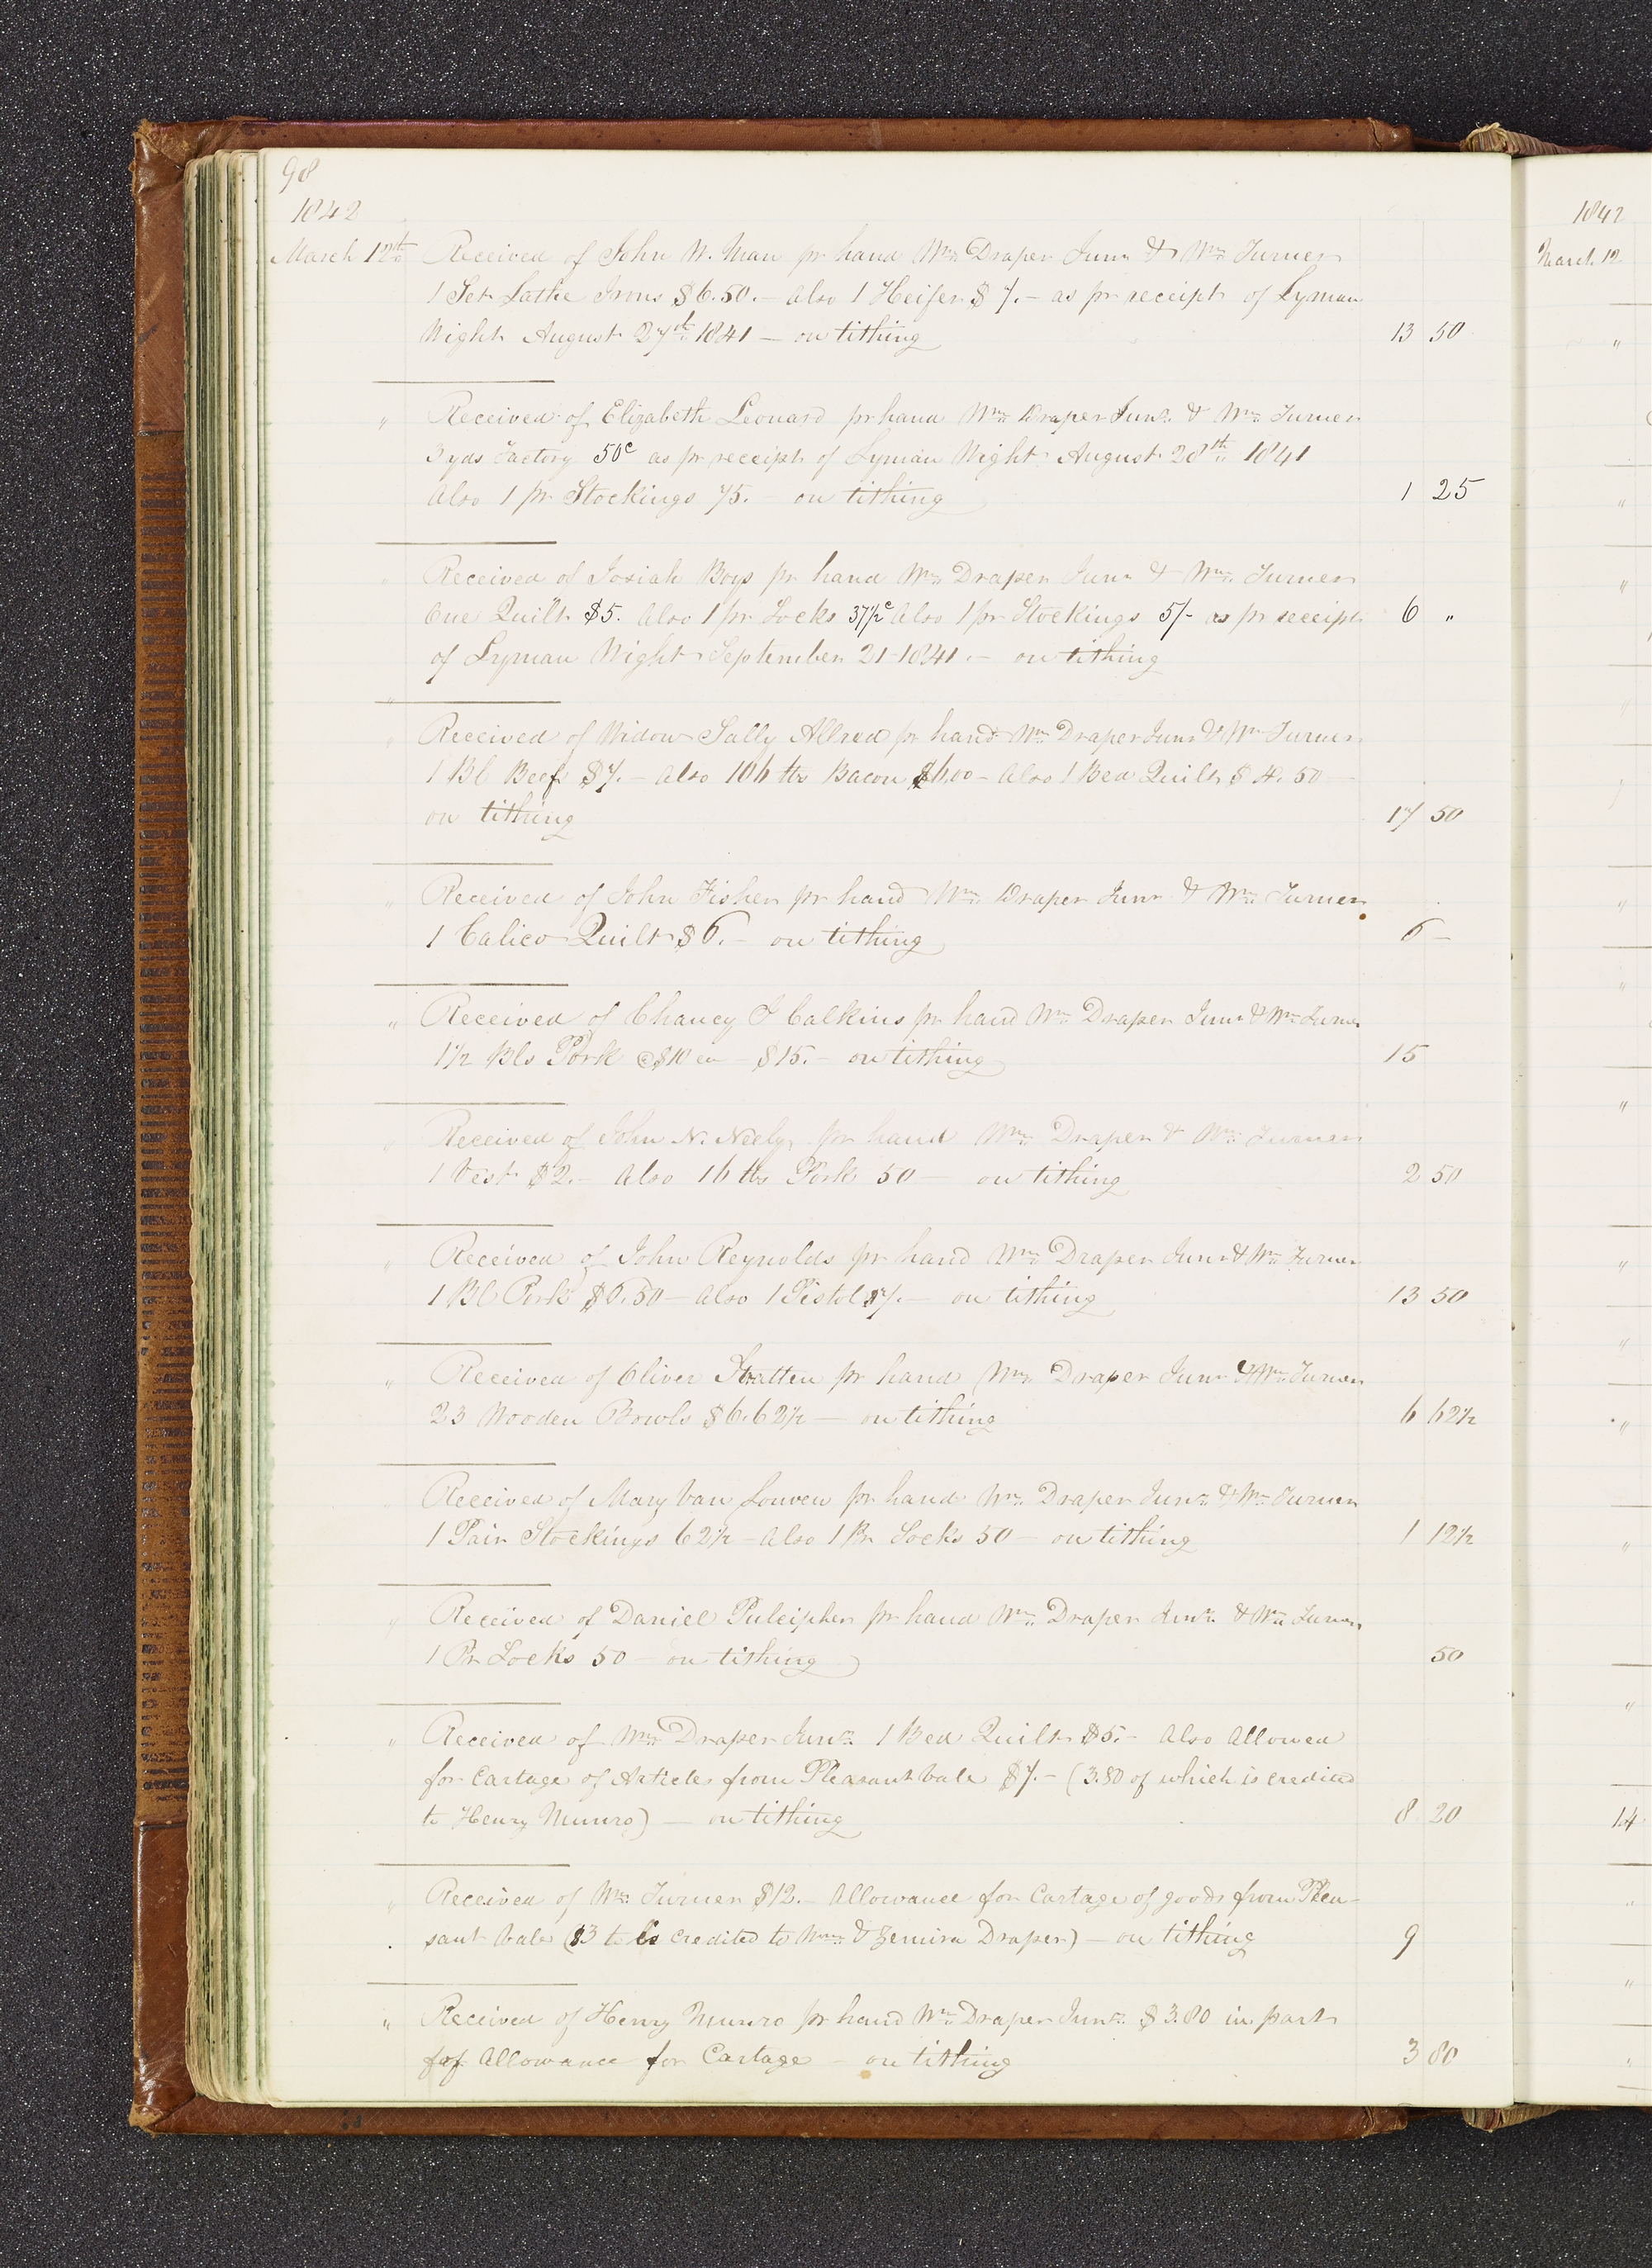 98
1842
March 12th Received of John W. Man pr hand Wm Draper Junr & Wm Turner
1 Set Lathe Irons $6.50.- also 1 Heifer $7.- as pr receipt of Lyman
Wight August 27th 1841 — on tithing 13 50
" Received of Elizabeth Leonard pr hand Wm Draper Junr & Wm Turner
3 yds Factory 50c as pr receipt of Lyman Wight August 28th 1841
Also 1 pr Stockings 75. — on tithing 1 25
" Received of Josiah Boys pr hand Wm Draper Junr & Wm Turner
One Quilt $5. Also 1 pr Socks 37½c Also 1 pr Stockings 5/- as pr receipt 6 "
of Lyman Wight September 21-1841.- on tithing
" Received of Widow Sally Allred pr hand Wm Draper Junr & Wm Turner
1 Bl Beef $7.- Also 106 lbs Bacon $6.00- Also 1 Bed Quilt $4.50
on tithing 17 50
" Received of John Fisher pr hand Wm Draper Junr & Wm Turner
1 Calico Quilt $6.- on tithing 6 —
" Received of Chancy I Calkins pr hand Wm Draper Junr & Wm Turner
1½ Bls Pork @ $10 ea - $15.- on tithing 15
" Received of John N. Neely pr hand Wm Draper & Wm Turner
1 Vest $2.- Also 16 lbs Pork 50 — on tithing 2 50
" Received of John Reynolds pr hand Wm Draper Junr & Wm Turner
1 Bl Pork $6.50 — Also 1 Pistol $7.— on tithing 13 50
" Received of Oliver Stratten pr hand Wm Draper Junr & Wm Turner
23 Wooden Bowls $6.62½ — on tithing 6 62½
" Received of Mary Van Louven pr hand Wm Draper Junr & Wm Turner
1 Pair Stockings 62½ - Also 1 Pr Socks 50 — on tithing 1 12½
" Received of Daniel Pulcipher pr hand Wm Draper Junr & Wm Turner
1 Pr Socks 50 — on tithing 50
" Received of Wm Draper Junr 1 Bed Quilt $5.- Also Allowed
for Cartage of Articles from Pleasant Vale $7.- (3.80 of which is credited
to Henry Munro) — on tithing 8 20
" Received of Wm Turner $12.- Allowance for Cartage of goods from Plea-
sant Vale ($3 to is credited to Wm & Zemira Draper) — on tithing 9
" Received of Henry Munro pr hand Wm Draper Junr $3.80 in part
of Allowance for Cartage — on tithing 3 80
1842
March 12
"
"
"
"
"
"
"
"
"
"
14
"
"